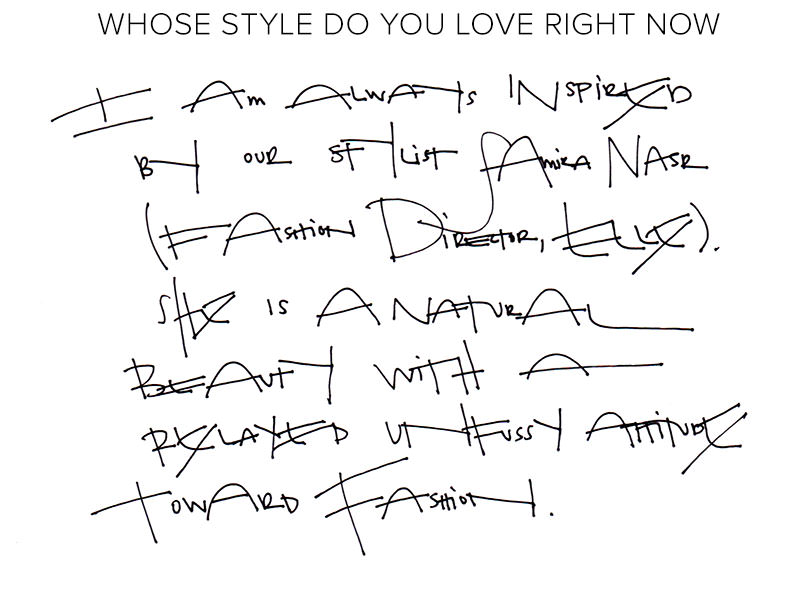 WHOSE STYLE DO YOU LOVE RIGHT NOW
I AM ALWAYS INSPIRED
BY OUR STYLIST AMIRA NASR
(FASHION DIRECTOR, ELLE).
SHE IS A NATURAL
BEAUTY WITH A
RELAXED UNFUSSY ATTITUDE
TOWARD FASHION.